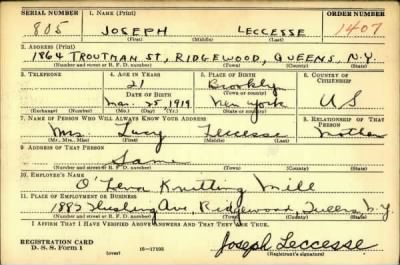 SERIAL NUMBER 1. NAME (Print) ORDER NUMBER
805 JOSEPH LECCESSE 1407
(First) (Middle) (Last)
2. ADDRESS (Print)
1864 TROUTMAN ST, RIDGEWOOD, QUEENS, N.Y.
(Number and street or R. F. D. number) (Town) (County) (State)
3. TELEPHONE 4. AGE IN YEARS 5. PLACE OF BIRTH 6. COUNTRY OF CITIZENSHIP
21 Brooklyn
(Town or county)
DATE OF BIRTH
Mar. 25, 1919 New York U S
(Exchange) (Number) (Mo.) (Day) (Yr.) (State or country)
7. NAME OF PERSON WHO WILL ALWAYS KNOW YOUR ADDRESS 8. RELATIONSHIP OF THAT PERSON
Mrs. Lucy Leccesse Mother
(Mr., Mrs., Miss) (First) (Middle) (Last)
9. ADDRESS OF THAT PERSON
Same
(Number and street or R. F. D. number) (Town) (County) (State)
10. EMPLOYER'S NAME
Knitting Mill
11. PLACE OF EMPLOYMENT OR BUSINESS
1882 Flushing Ave, Ridgewood, N.Y
(Number and street or R. F. D. number) (Town) (County) (State)
I AFFIRM THAT I HAVE VERIFIED ABOVE ANSWERS AND THAT THEY ARE TRUE.
REGISTRATION CARD
D. S. S. Form 1 (over) 16-17105 Joseph Leccesse
(Registrant's signature)